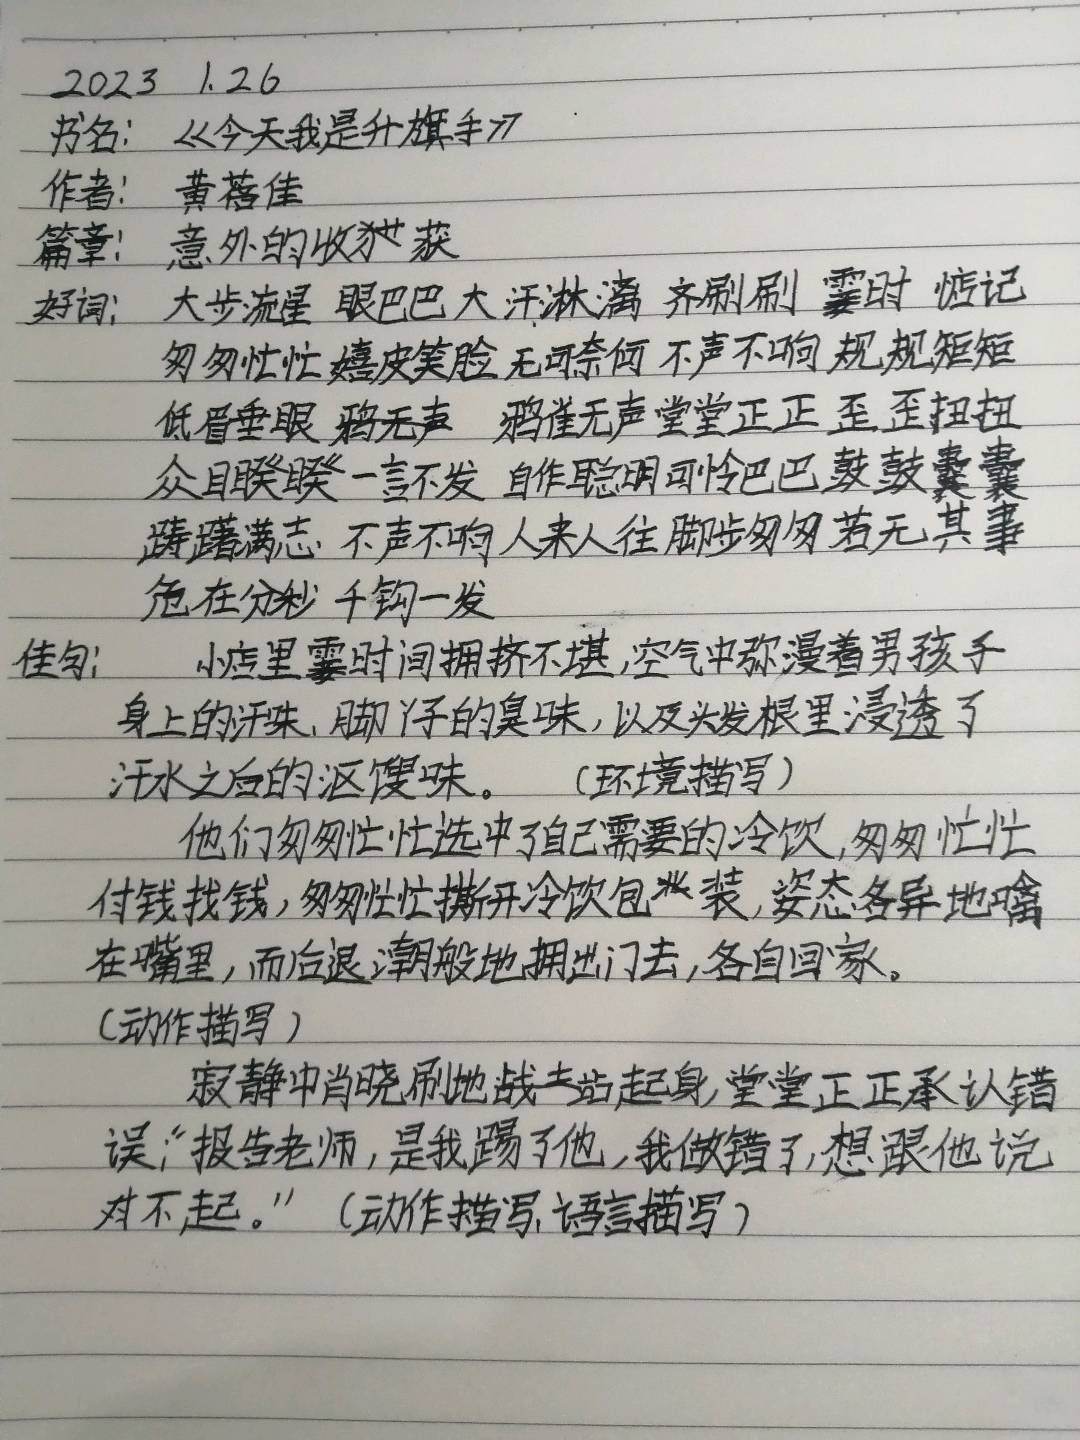 2023 1.26
书名：《今天我是升旗手》
作者：黄蓓佳
篇章：意外的收获
好词：大步流星 眼巴巴 大汗淋漓 齐刷刷 霎时 惦记
匆匆忙忙 嬉皮笑脸 无可奈何 不声不响 规规矩矩
低眉垂眼 鸦无声 鸦雀无声 堂堂正正 歪歪扭扭
众目睽睽 一言不发 自作聪明 可怜巴巴 鼓鼓囊囊
踌躇满志 不声不响 人来人往 脚步匆匆 若无其事
危在分秒 千钧一发
佳句：小店里霎时间拥挤不堪，空气中弥漫着男孩子
身上的汗味、脚丫子的臭味，以及头发根里浸透了
汗水之后的沤馊味。（环境描写）
他们匆匆忙忙选中了自己需要的冷饮，匆匆忙忙
付钱找钱，匆匆忙忙撕开冷饮包装，姿态各异地噙
在嘴里，而后退潮般地拥出门去，各自回家。
（动作描写）
寂静中肖晓刷地站起身，堂堂正正承认错
误；“报告老师，是我踢了他，我做错了，想跟他说
对不起。”（动作描写、语言描写）